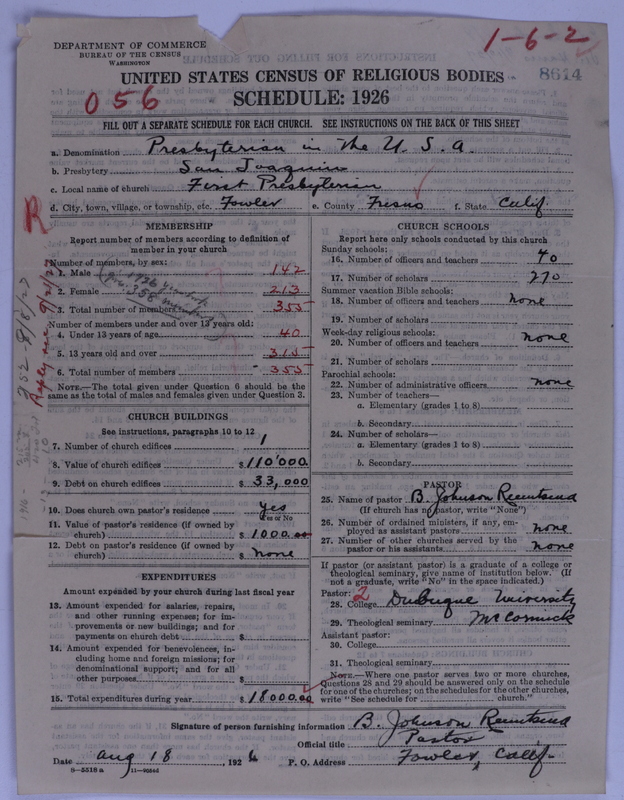 1-6-2
DEPARTMENT OF COMMERCE
BUREAU OF THE CENSUS
WASHINGTON
UNITED STATES CENSUS OF RELIGIOUS BODIES
8614
056
SCHEDULE: 1926
FILL OUT A SEPARATE SCHEDULE FOR EACH CHURCH. SEE INSTRUCTIONS ON THE BACK OF THIS SHEET
a. Denomination Presbyterian in the U. S. A.
b. Presbytery San Joaquin
c. Local name of church First Presbyterian
d. City, town, village, or township, etc. Fowler e. County Fresno f. State Calif.
R
MEMBERSHIP
Report number of members according to definition of
member in your church
Number of members, by sex:
1. Male 142
2. Female 213
3. Total number of members 355
Number of members under and over 13 years old:
4. Under 13 years of age 40
5. 13 years old and over 315
6. Total number of members 355
NOTE.—The total given under Question 6 should be the
same as the total of males and females given under Question 3.
CHURCH BUILDINGS
See instructions, paragraphs 10 to 12
7. Number of church edifices 1
8. Value of church edifices $110'000.
9. Debt on church edifices $33,000
10. Does church own pastor's residence yes
Yes or No
11. Value of pastor's residence (if owned by
church) $1000.00
12. Debt on pastor's residence (if owned by
church) $none
EXPENDITURES
Amount expended by your church during last fiscal year
13. Amount expended for salaries, repairs,
and other running expenses; for im-
provements or new buildings; and for
payments on church debt $
14. Amount expended for benevolences, in-
cluding home and foreign missions; for
denominational support; and for all
other purposes $
15. Total expenditures during year $18000.00
CHURCH SCHOOLS
Report here only schools conducted by this church
Sunday schools:
16. Number of officers and teachers 40
17. Number of scholars 270
Summer vacation Bible schools:
18. Number of officers and teachers none
19. Number of scholars
Week-day religious schools:
20. Number of officers and teachers none
21. Number of scholars
Parochial schools:
22. Number of administrative officers none
23. Number of teachers—
a. Elementary (grades 1 to 8)
b. Secondary
24. Number of scholars—
a. Elementary (grades 1 to 8)
b. Secondary
PASTOR
25. Name of pastor B. Johnson Reemtsema
(If church has no pastor, write "None")
26. Number of ordained ministers, if any, em-
ployed as assistant pastors none
27. Number of other churches served by the
pastor or his assistants none
If pastor (or assistant pastor) is a graduate of a college or
theological seminary, give name of institution below. (If
not a graduate, write "No" in the space indicated.)
Pastor: 2
28. College Dubuque University
29. Theological seminary McCormick
Assistant pastor:
30. College
31. Theological seminary
NOTE.—Where one pastor serves two or more churches,
Questions 28 and 29 should be answered only on the schedule
for one of the churches; on the schedules for the other churches,
write "See schedule for church."
Signature of person furnishing information B. Johnson Reemtsema
Official title Pastor
Date Aug 18 1926 P. O. Address Fowler, Calif.
8-5518 a 11-9654d